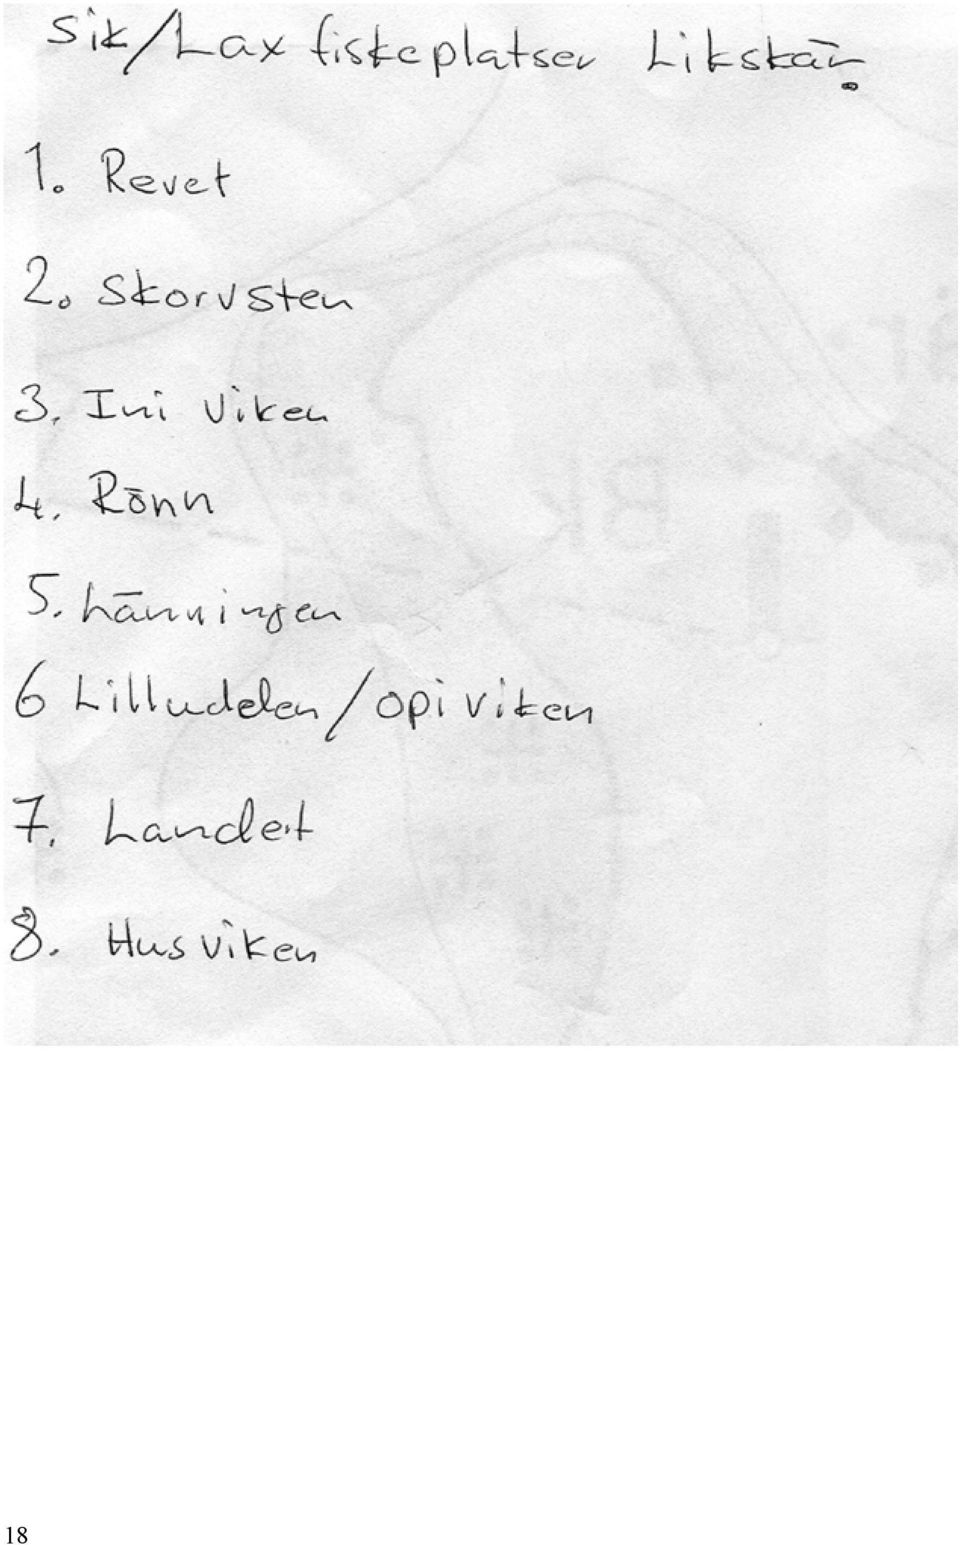 Sik/Lax fiskeplatser Likskär.
1. Revet
2. Skorvsten
3. Ini viken
4. Rönn
5. Länningen
6 Lilludden/opi viken
7. Landet
8. Husviken
18